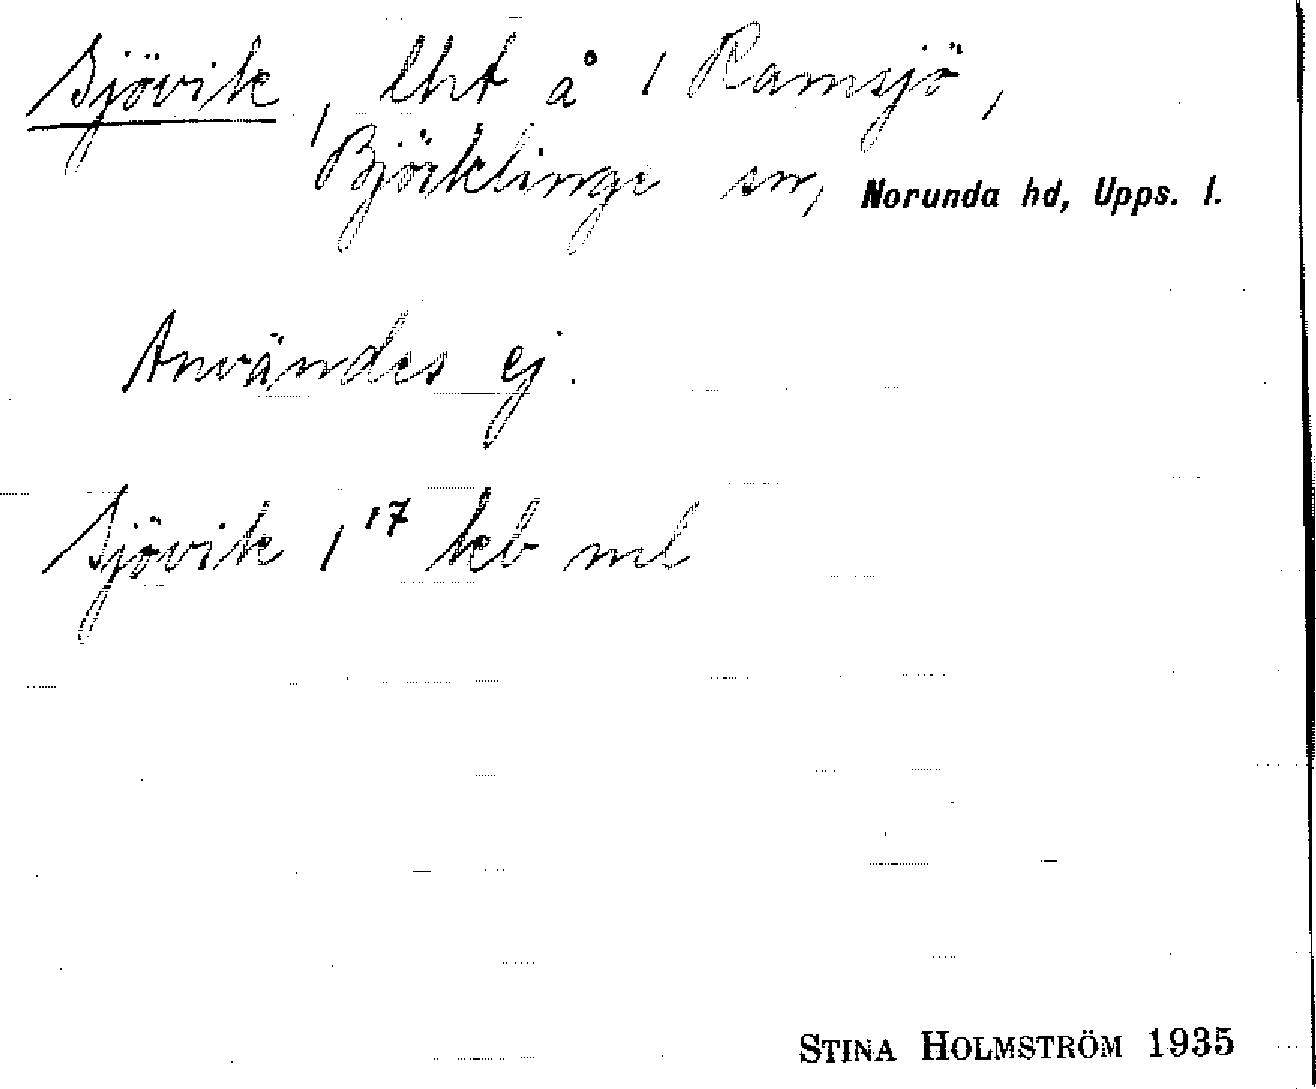 Sjövik, lht å 1 Ramsjö,
Björklinge sn, Norunda hd, Upps. l.
Användes ej.
Sjövik 1¹⁷ kb ml
STINA HOLMSTRÖM 1935